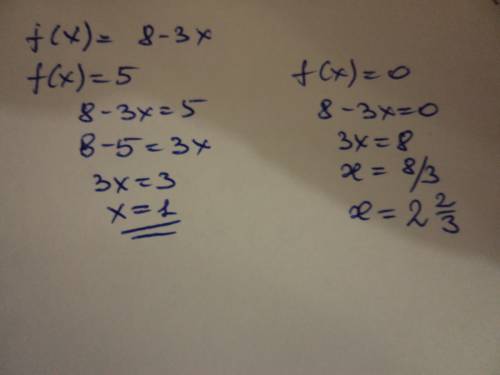 f(x) = 8-3x
f(x) = 5
8-3x=5
8-5=3x
3x=3
x=1
f(x)=0
8-3x=0
3x=8
x = 8/3
x = 2 2/3